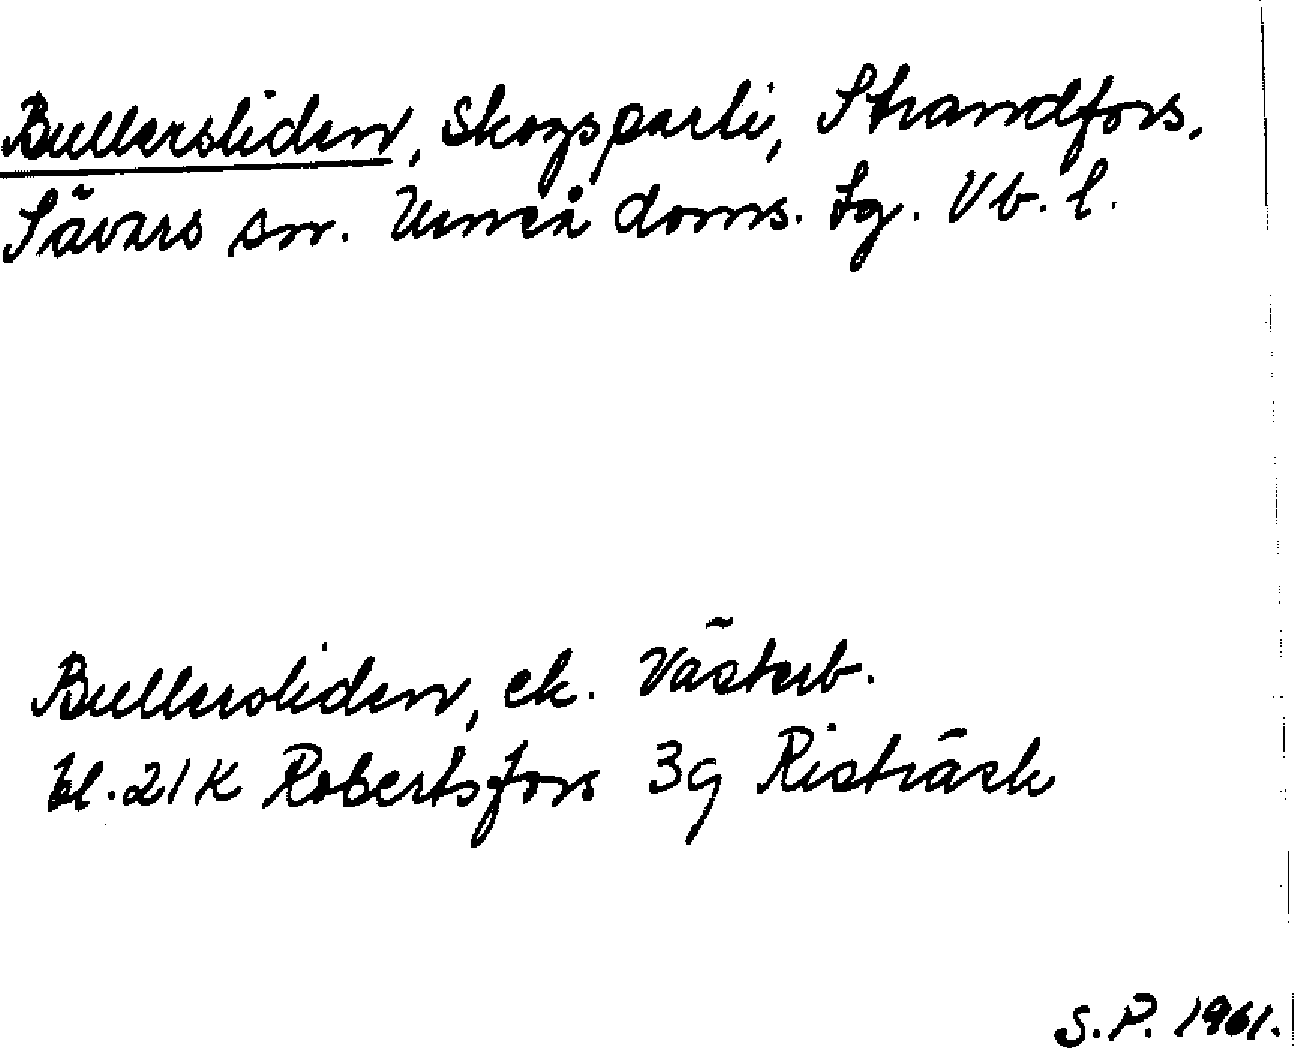 Bullersliden, Skogsparti, Strandfors.
Sävars sn. Umeå doms. tg. Vb. l.
Bullersliden, ek. Västerb.
bl. 21K Robertsfors 3g Risträsk
S.P. 1961.